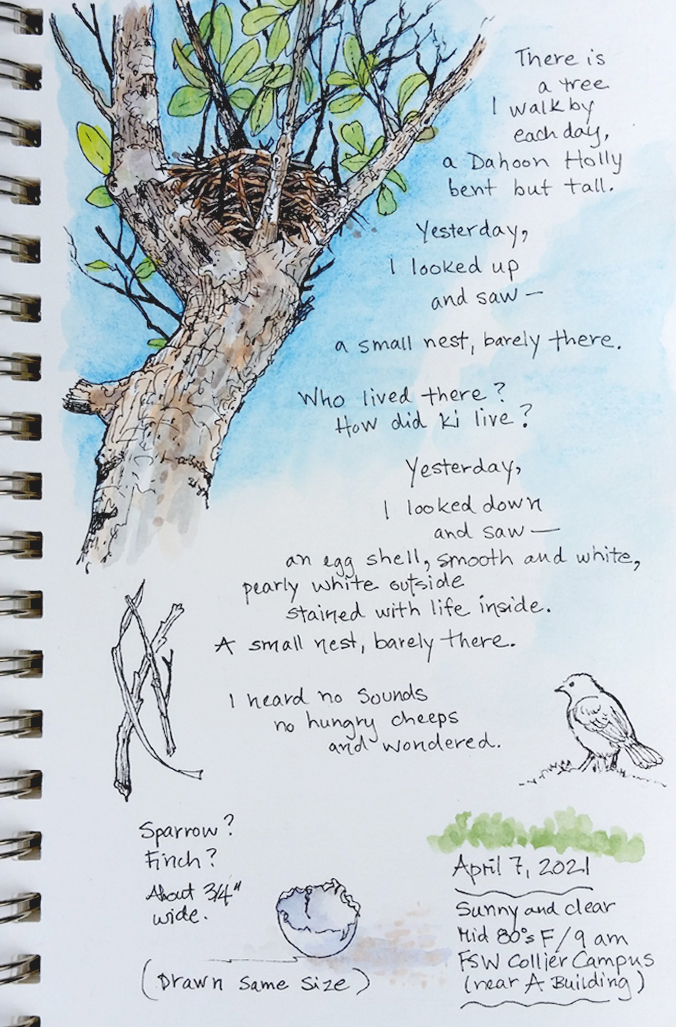 There is
a tree
I walk by
each day,
a Dahoon Holly
bent but tall.
Yesterday,
I looked up
and saw—
a small nest, barely there.
Who lived there?
How did ki live?
Yesterday,
I looked down
and saw—
an egg shell, smooth and white,
pearly white outside
stained with life inside.
A small nest, barely there.
I heard no sounds
no hungry cheeps
and wondered.
Sparrow?
Finch?
About 3/4"
wide.
(Drawn Same Size)
April 7, 2021
Sunny and clear
Mid 80°s F/9 am
FSW Collier Campus
(near A Building)